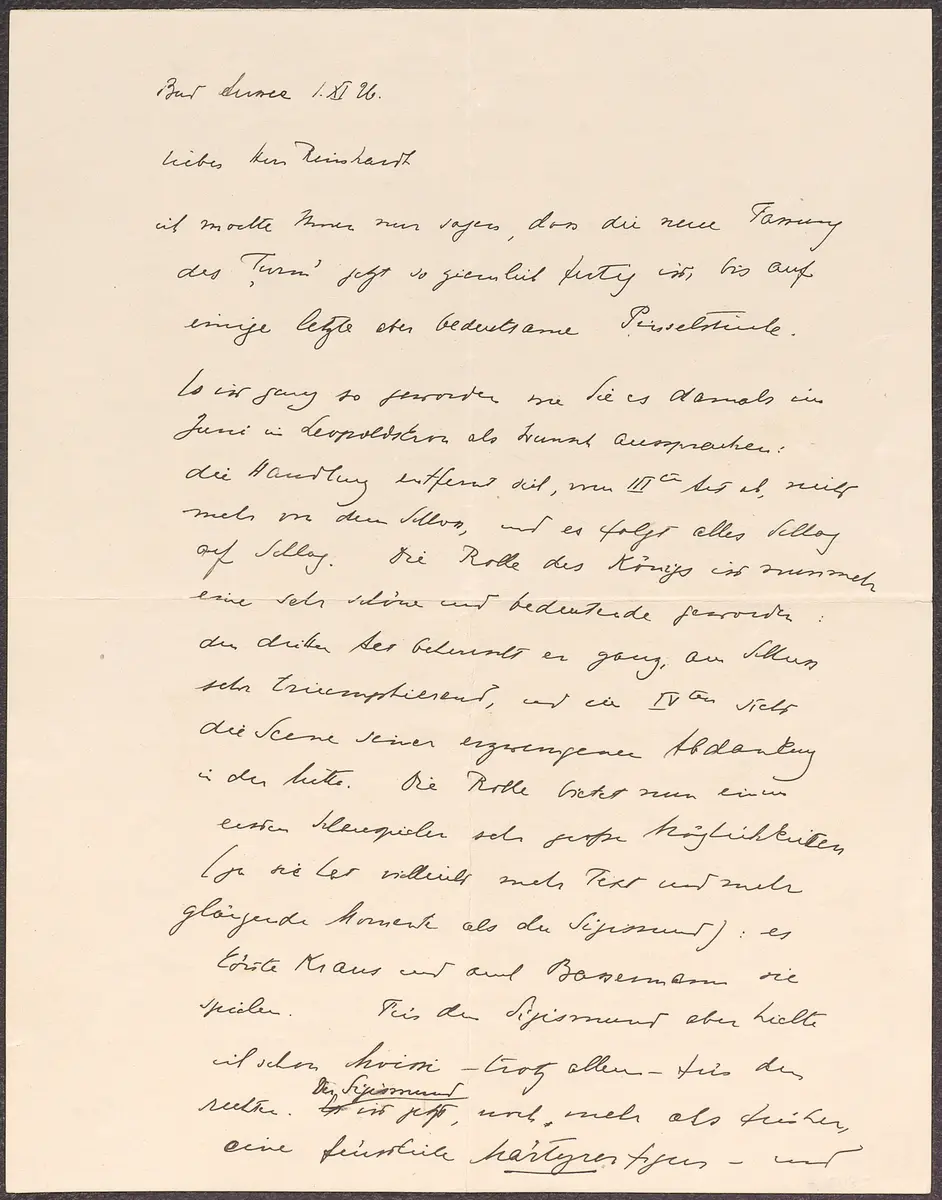 Bad Aussee 1. XI 26.
lieber Herr Reinhardt
ich möchte Ihnen nur sagen, dass die neue Fassung
des „Turm" jetzt so ziemlich fertig ist, bis auf
einige letzte aber bedeutsame Pinselstriche.
Es ist ganz so geworden wie Sie es damals im
Juni in Leopoldskron als Wunsch aussprachen:
die Handlung entfernt sich, vom IIIten Act ab, nicht
mehr von dem Schloss, und es folgt alles Schlag
auf Schlag. Die Rolle des Königs ist nunmehr
eine sehr schöne und bedeutende geworden:
den dritten Act beherrscht er ganz, am Schluss
sehr triumphierend, und im IVten steht
die Scene seiner erzwungenen Abdankung
in der Mitte. Die Rolle bietet nun einem
ersten Schauspieler sehr große Möglichkeiten
(ja sie hat vielleicht mehr Text und mehr
glänzende Momente als der Sigismund): es
könnte Kraus und auch Bassermann sie
spielen. Für den Sigismund aber hielte
ich schon Moissi – trotz allem – für den
rechten. Der Sigismund ist jetzt, noch mehr als früher,
eine fürstliche Märtyrerfigur – und